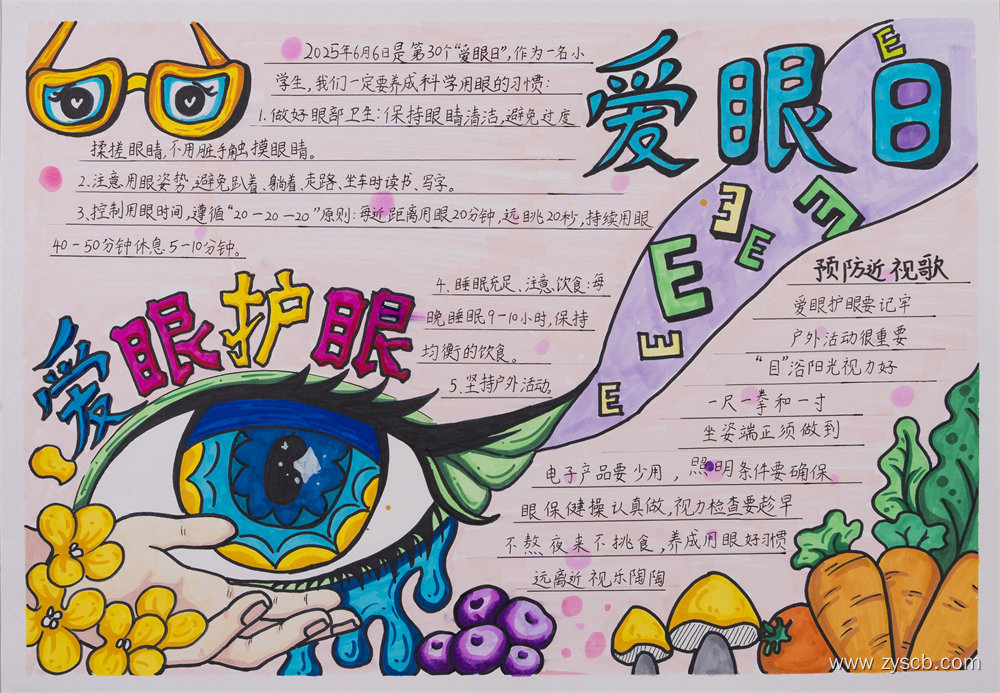 爱眼日
2025年6月6日是第30个“爱眼日”,作为一名小
学生,我们一定要养成科学用眼的习惯:
1.做好眼部卫生:保持眼睛清洁,避免过度
揉搓眼睛,不用脏手触摸眼睛。
2.注意用眼姿势,避免趴着、躺着、走路、坐车时读书、写字。
3.控制用眼时间,遵循“20-20-20”原则:每近距离用眼20分钟,远眺20秒,持续用眼
40-50分钟休息5-10分钟。
4.睡眠充足、注意饮食:每
晚睡眠9-10小时,保持
均衡的饮食。
5.坚持户外活动。
爱眼护眼
E
E
E
E
E
E
E
预防近视歌
爱眼护眼要记牢
户外活动很重要
“目”浴阳光视力好
一尺一拳和一寸
坐姿端正须做到
电子产品要少用,照明条件要确保
眼保健操认真做,视力检查要趁早
不熬夜来不挑食,养成用眼好习惯
远离近视乐陶陶
www.zyscb.com